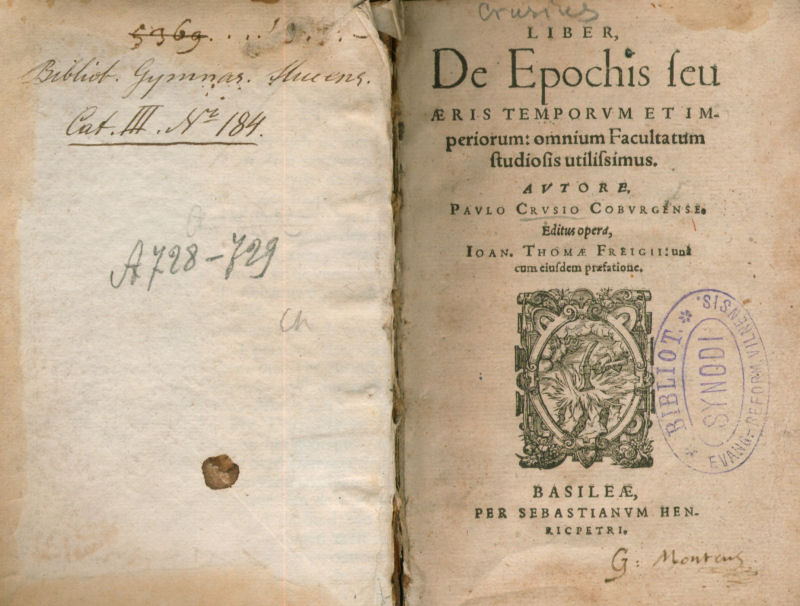 5369
Bibliot. Gymnas.
Cat. III. Nr 184.
A728-729
Ch
Crusius
LIBER,
De Epochis ſeu
ÆRIS TEMPORVM ET IM-
periorum: omnium Facultatum
ſtudioſis utiliſsimus.
AVTORE,
PAVLO CRVSIO COBVRGENSE.
Editus opera,
IOAN. THOMÆ FREIGII: unà
cum eiuſdem præfatione.
BIBLIOT.
SYNODI
EVANG. REFORM. VILNENSIS.
BASILEÆ,
PER SEBASTIANVM HEN-
RICPETRI.
G: